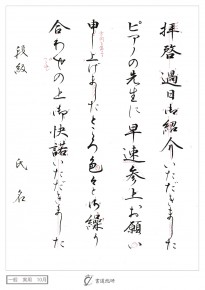 拝啓 過日御紹介いただきました
ピアノの先生に早速参上お願い
申し上げましたところ色々と御繰り
合わせの上御快諾いただきました
段級 氏名
一般 実用 10月
書道範師